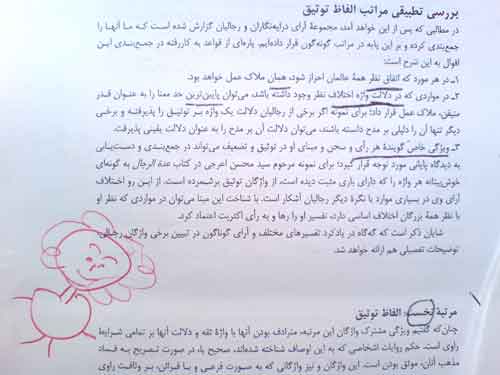 بررسی تطبیقی مراتب الفاظ توثیق
در مطالبی که پس از این خواهد آمد، مجموعهٔ آرای درایه‌نگاران و رجالیان گزارش شده است که ما آنها را
جمع‌بندی کرده و بر این پایه در مراتب گونه‌گون قرار داده‌ایم. پاره‌ای از قواعد به کاررفته در جمع‌بندی این
اقوال به این شرح است:
۱ـ در هر مورد که اتفاق نظر همهٔ عالمان احراز شود، همان ملاک عمل خواهد بود.
۲ـ در مواردی که در دلالت واژه اختلاف نظر وجود داشته باشد، می‌توان پایین‌ترین حد معنا را به عنوان قدر
متیقن، ملاک عمل قرار داد؛ برای نمونه اگر برخی از رجالیان دلالت یک واژه بر توثیق را پذیرفته و برخی
دیگر تنها آن را دلیلی بر مدح دانسته باشند، می‌توان دلالت آن بر مدح را به عنوان دلالت یقینی پذیرفت.
۳ـ ویژگی خاص گویندهٔ هر رأی و سخن و مبنای او در توثیق و تضعیف می‌تواند در جمع‌بندی و دست‌یابی
به دیدگاه پایانی مورد توجه قرار گیرد؛ برای نمونه مرحوم سید محسن اعرجی در کتاب عدة الرجال به گونه‌ای
خوش‌بینانه هر واژه را که دارای باری مثبت دیده است، از واژگان توثیق برشمرده است. از این رو اختلاف
آرای وی در بسیاری موارد با نگرهٔ دیگر رجالیان آشکار است. با شناخت این مبنا می‌توان در مواردی که نظر او
با نظر همهٔ بزرگان اختلاف اساسی دارد، تفسیر او را رها و به رأی اکثریت اعتماد کرد.
شایان ذکر است که گه‌گاه در یادکرد تفسیرهای مختلف و آرای گوناگون در تبیین برخی واژگان رجالی
توضیحات تفصیلی هم ارائه خواهد شد.
مرتبهٔ نخست: الفاظ توثیق
چنان‌که گفتیم ویژگی مشترک واژگان این مرتبه، مترادف بودن آنها با واژهٔ ثقه و دلالت آنها بر تمامی شرایط
راوی است. حکم روایات اشخاصی که به این اوصاف شناخته شده‌اند، صحیح یا، در صورت تصریح به فساد
مذهب آنان، موثق بودن است. این واژگان و نیز واژگانی که به صورت فرضی و با قرائن، بر وثاقت راوی